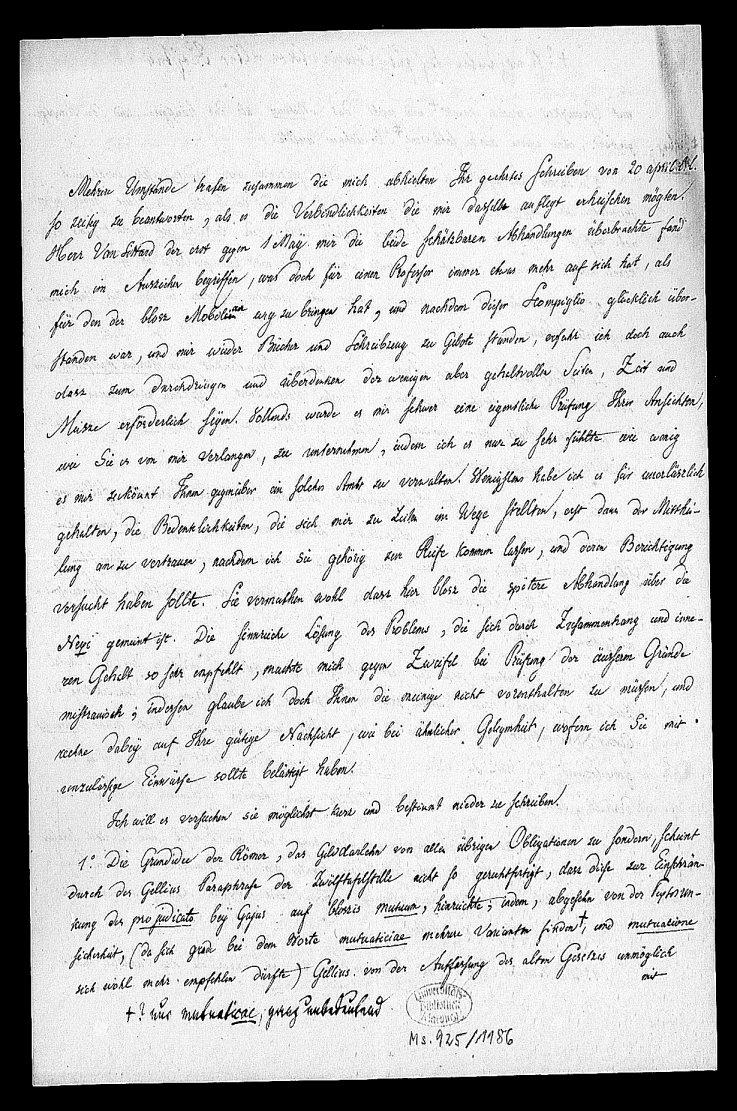 Mehrere Umstände trafen zusammen die mich abhielten Ihr geehrtes Schreiben von 20 april
so zeitig zu beantworten, als es die Verbindlichkeiten die mir dasselbe auflegt erheischen mögten.
Herr Van Sittard der erst gegen 1 May mir die beide schätzbaren Abhandlungen überbrachte fand
mich im Ausziehn begriffen, was doch für einen Professor immer etwas mehr auf sich hat, als
für den der blosz Mobilien weg zu bringen hat, und nachdem dieser Scompiglio glücklich über-
standen war, und mir wieder Bücher und Schreibzeug zu Gebote standen, erfuhr ich doch auch
dasz zum durchdringen und überdenken der wenigen aber gehaltvollen Seiten, Zeit und
Musze erforderlich seyen. Vollends wurde es mir schwer eine eigentliche Prüfung Ihrer Ansichten,
wie Sie es von mir verlangen, zu unternehmen, indem ich es nur zu sehr fühlte wie wenig
es mir zukömmt Ihnen gegenüber ein solches Amt zu verwalten. Wenigstens habe ich es für unerläszlich
gehalten, die Bedenklichkeiten, die sich mir zu Zeiten im Wege stellten, erst dann der Mitthei-
lung an zu vertrauen, nachdem ich sie gehörig zur Reife kommen lassen, und deren Berichtigung
versucht haben sollte. Sie vermuthen wohl dasz hier blosz die spätere Abhandlung über die
Nexi gemeint ist. Die sinnreiche Lösung des Problems, die sich durch Zusammenhang und inne-
ren Gehalt so sehr empfehlt, machte mich gegen Zweifel bei Prüfung der äussern Gründe
mistrauisch; indessen glaube ich doch Ihnen die meinige nicht vorenthalten zu müssen, und
rechne dabey auf Ihre gütige Nachsicht, wie bei ähnlicher Gelegenheit, wofern ich Sie mit
unzulässige Einwürfe sollte belästigt haben.
Ich will es versuchen sie möglichst kurz und bestimmt nieder zu schreiben.
1° Die Grundidee der Römer, das Gelddarlehn von allen übrigen Obligationen zu sondern, scheint
durch des Gellius Paraphrase der Zwölftafelstelle nicht so gerechtfertigt, dasz diese zur Einschrän-
kung des pro judicato bey Gajus auf bloszes mutuum, hinreichte; indem, abgesehn von der Textesun-
sicherheit, (da sich grade bei dem Worte mutuaticiae mehrere Varianten finden†, und mutuatione
sich wohl mehr empfehlen dürfte) Gellius von der Auffassung des alten Gesetzes unmöglich
mit
†? nur mutuaticae, ganz unbedeutend
Universitäts-
Bibliothek
Ms. 925/1186